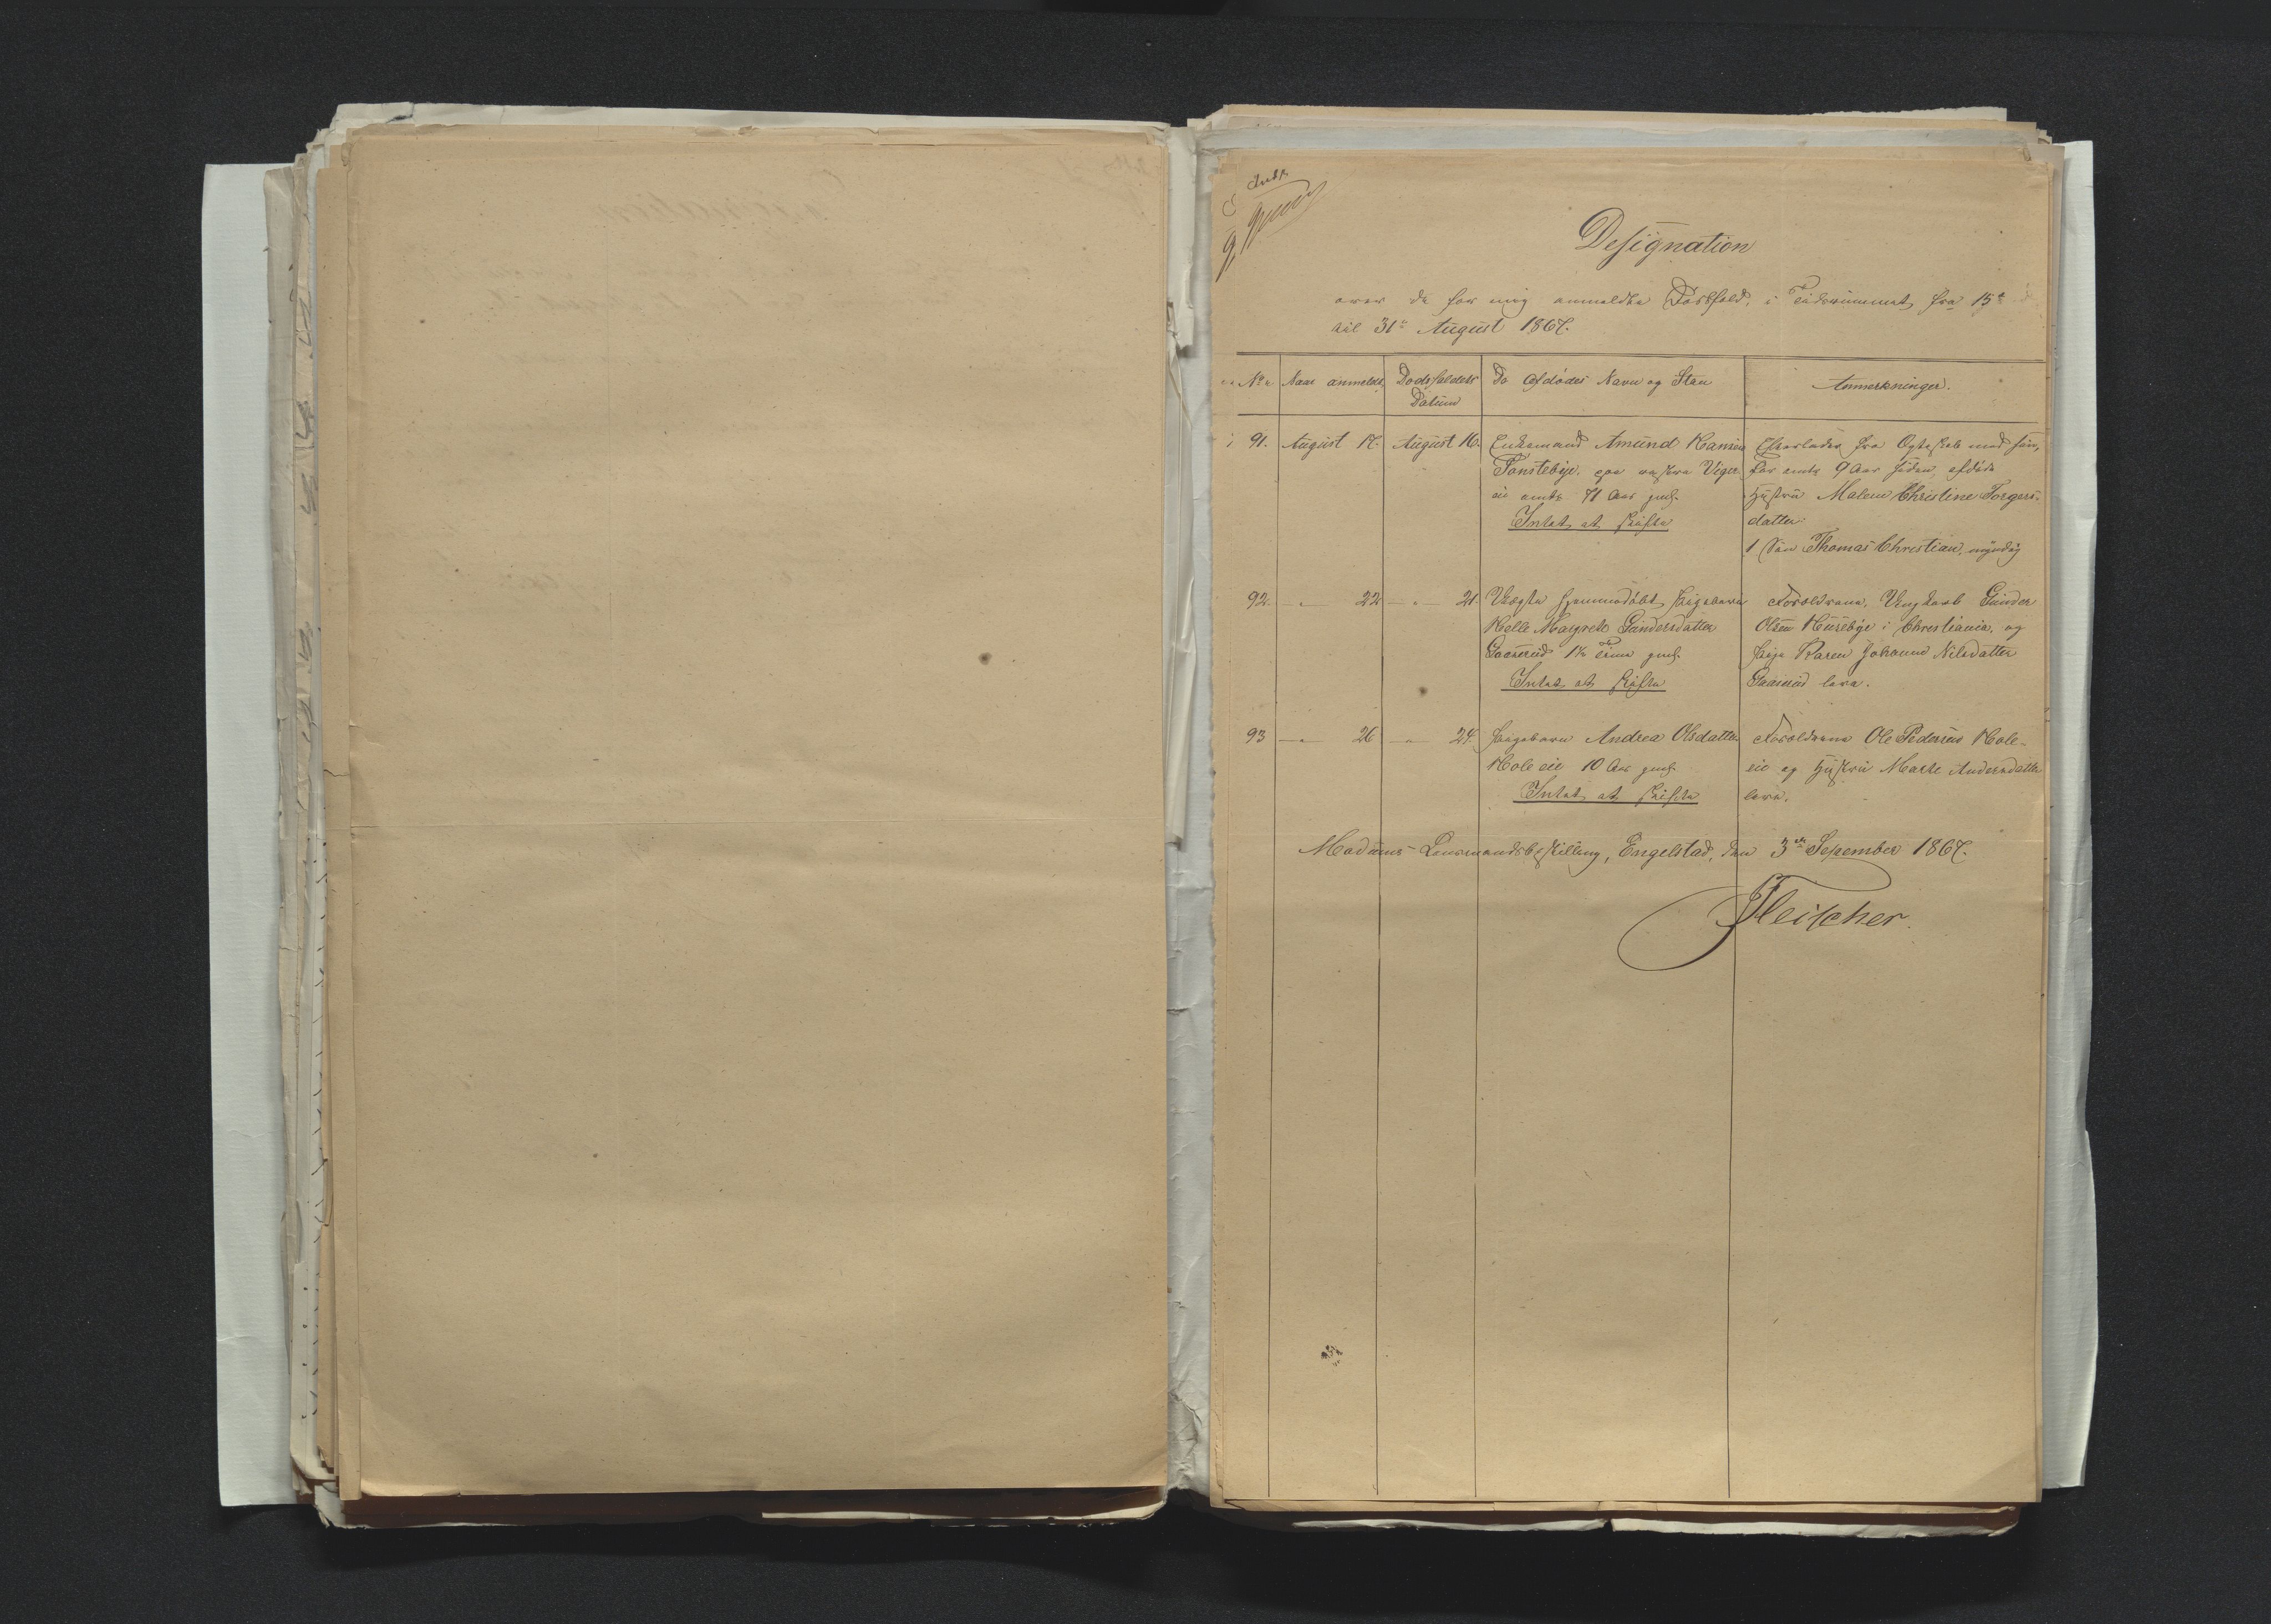 Designation
over de for mig anmeldte Dødsfald, i Tidsrummet fra 15de
til 31te August 1867.
No. Naar anmeldt. Dødsfaldets Datum De Afdødes Navn og Stan Anmerkninger.
91. August 17. August 16. Enkemand Amund Hansen
Tonstebye, paa vestre Viger
eie omtr 71 Aar gml.
Intet at skifte
Efterlader fra Egteskab med sin,
for omtr 9 Aar siden, afdøde
Hustru Malene Christine Torgers-
datter
1 Søn Thomas Christian, myndig
92. " 22 " 21. Uægte hjemmedøbt Pigebarn
Helle Margrete Gundersdatter
1½ Time gml.
Intet at skifte
Forældrene, Ungkarl Gunder
Olsen Huseby i Christiania, og
Pige Karen Johanne Nilsdatter
leve.
93 " 26 " 24 Pigebarn Andrea Olsdatter
Hole eie 10 Aar gml.
Intet at skifte
Forældrene Ole Pedersen Hole-
eie og Hustru Marte Andersdatter
leve.
Modums Lensmandsbestilling, Engelstad, den 3die September 1867.
Fleischer.